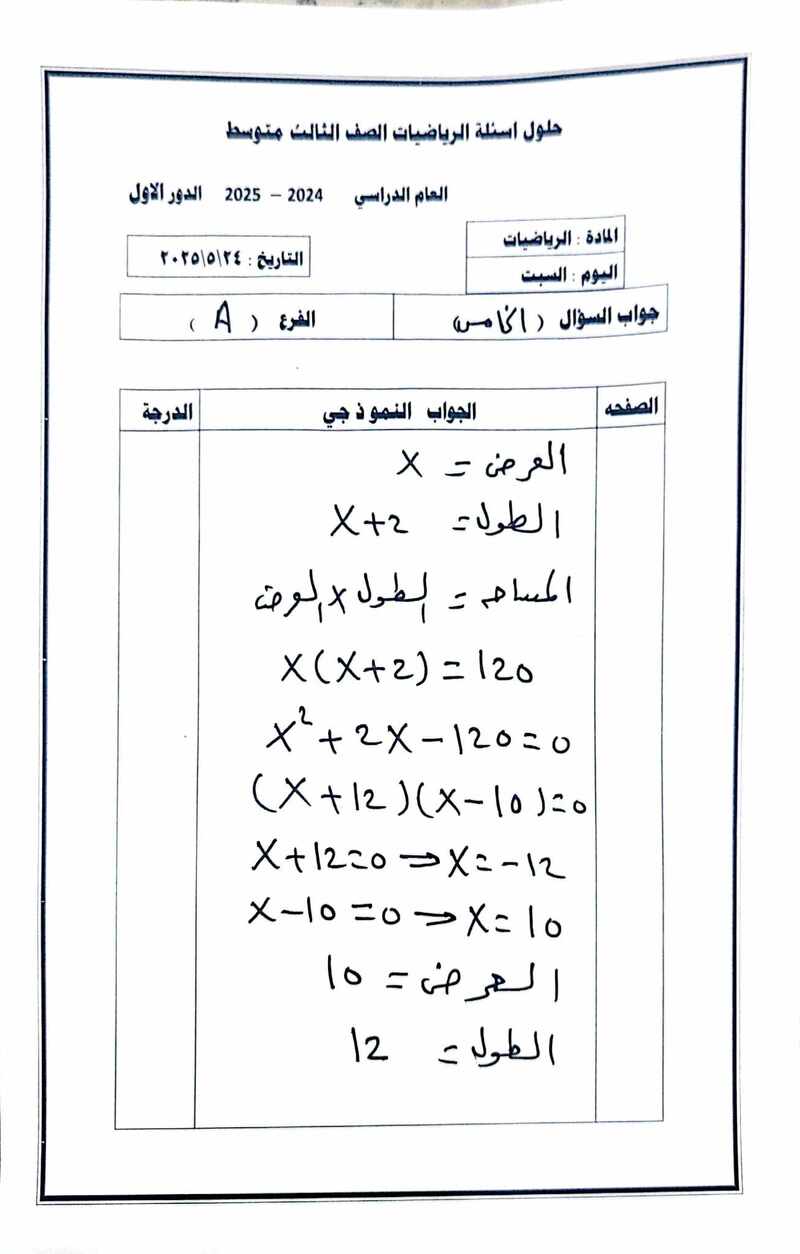 حلول اسئلة الرياضيات الصف الثالث متوسط
العام الدراسي 2024 – 2025 الدور الاول
المادة : الرياضيات
اليوم : السبت
التاريخ : ٢٠٢٥\٥\٢٤
جواب السؤال ( الخامس ) الفرع ( A )
الصفحه الجواب النموذجي الدرجة
العرض = X
الطول = X+2
المساحه = الطول x العرض
X(X+2)=120
X²+2X-120=0
(X+12)(X-10)=0
X+12=0 ⇒ X=-12
X-10=0 ⇒ X=10
العرض = 10
الطول = 12